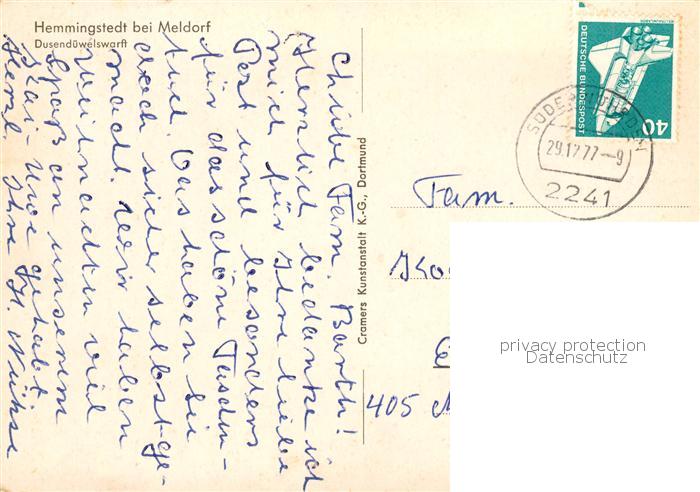 Hemmingstedt bei Meldorf
Dusendüwelswarft
Liebe Fam. Barth!
Herzlich bedanke ich
mich für Ihre liebe
Post und besonders
für das schöne Taschen-
tuch. Das haben Sie
doch sicher selbst ge-
macht. Wir haben
Weihnachten viel
Spaß an unserem
Kai-Uwe gehabt.
Herzl. Ihre
Cramers Kunstanstalt K.-G., Dortmund
DEUTSCHE BUNDESPOST
40
29.12.77-9
2241
Fam.
405
privacy protection
Datenschutz